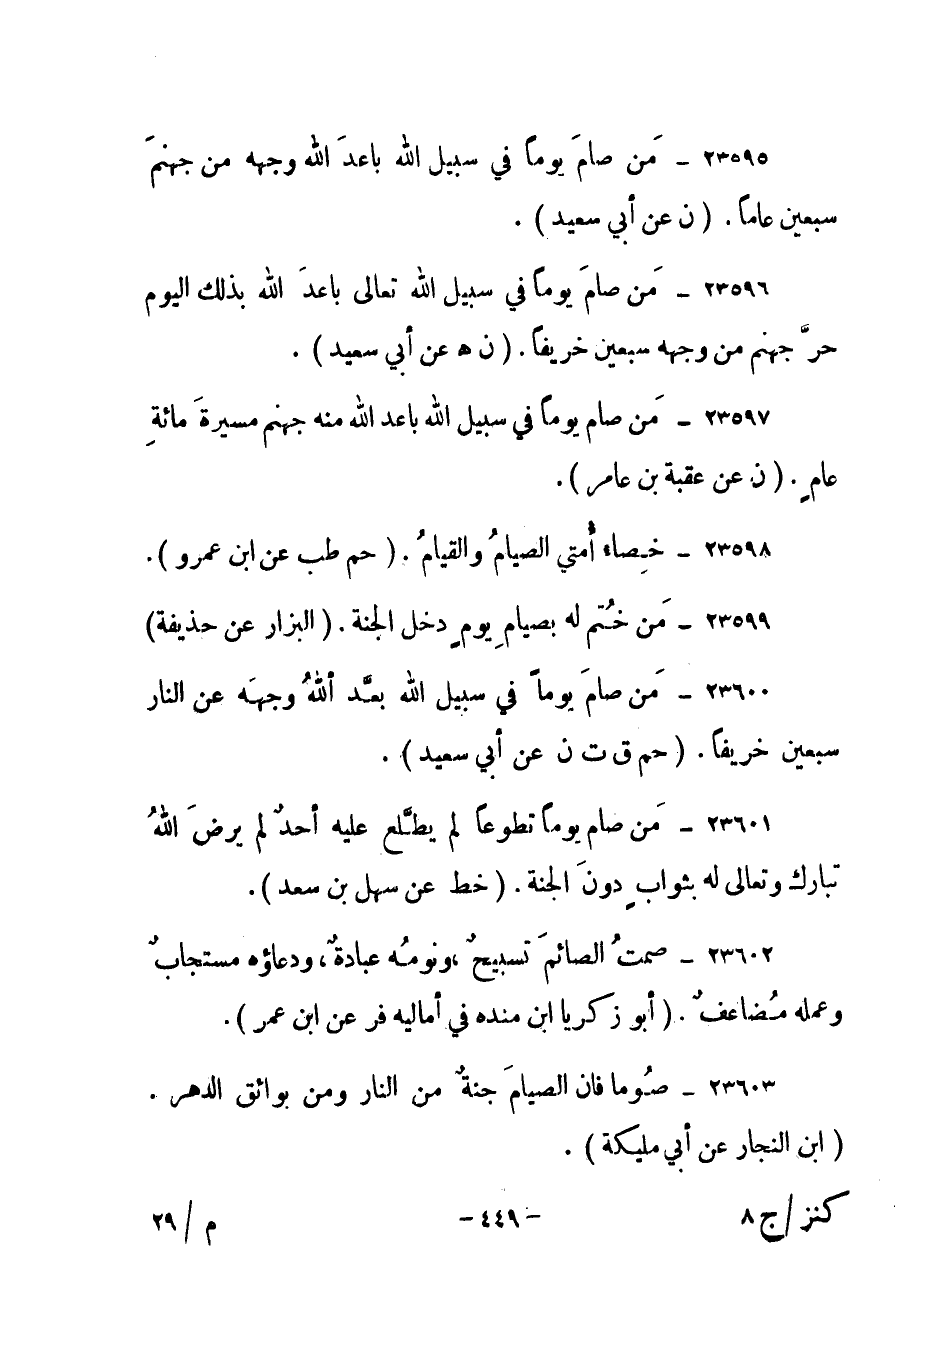 ٢٣٥٩٥ ـ مَن صامَ يوماً في سبيل الله باعدَ الله وجهه من جهنمَ
سبعين عاماً . ( ن عن أبي سعيد ) .
٢٣٥٩٦ ـ مَن صامَ يوماً في سبيل الله تعالى باعدَ الله بذلك اليوم
حرَّ جهنم من وجهه سبعين خريفاً . ( ن ه عن أبي سعيد ) .
٢٣٥٩٧ ـ مَن صام يوماً في سبيل الله باعد الله منه جهنم مسيرةَ مائةِ
عامٍ . ( ن عن عقبة بن عامر ) .
٢٣٥٩٨ ـ خِصاء أُمتي الصيامُ والقيامُ . ( حم طب عن ابن عمرو ) .
٢٣٥٩٩ ـ مَن خُتم له بصيامِ يومٍ دخل الجنة . ( البزار عن حذيفة )
٢٣٦٠٠ ـ مَن صامَ يوماً في سبيل الله بعَّد أللهُ وجهَه عن النار
سبعين خريفاً . ( حم ق ت ن عن أبي سعيد ) .
٢٣٦٠١ ـ مَن صام يوماً تطوعاً لم يطَّلع عليه أحدٌ لم يرضَ اللهُ
تبارك وتعالى له بثوابٍ دونَ الجنة . ( خط عن سهل بن سعد ) .
٢٣٦٠٢ ـ صمتُ الصائمَ تسبيحٌ ،ونومُه عبادةٌ، ودعاؤه مستجابٌ
وعمله مُضاعفٌ . ( أبو زكريا ابن منده في أماليه فر عن ابن عمر ) .
٢٣٦٠٣ ـ صُوما فان الصيامَ جنةٌ من النار ومن بوائق الدهر .
( ابن النجار عن أبي مليكة ) .
كنز /ج ٨ - ٤٤٩ - م / ٢٩